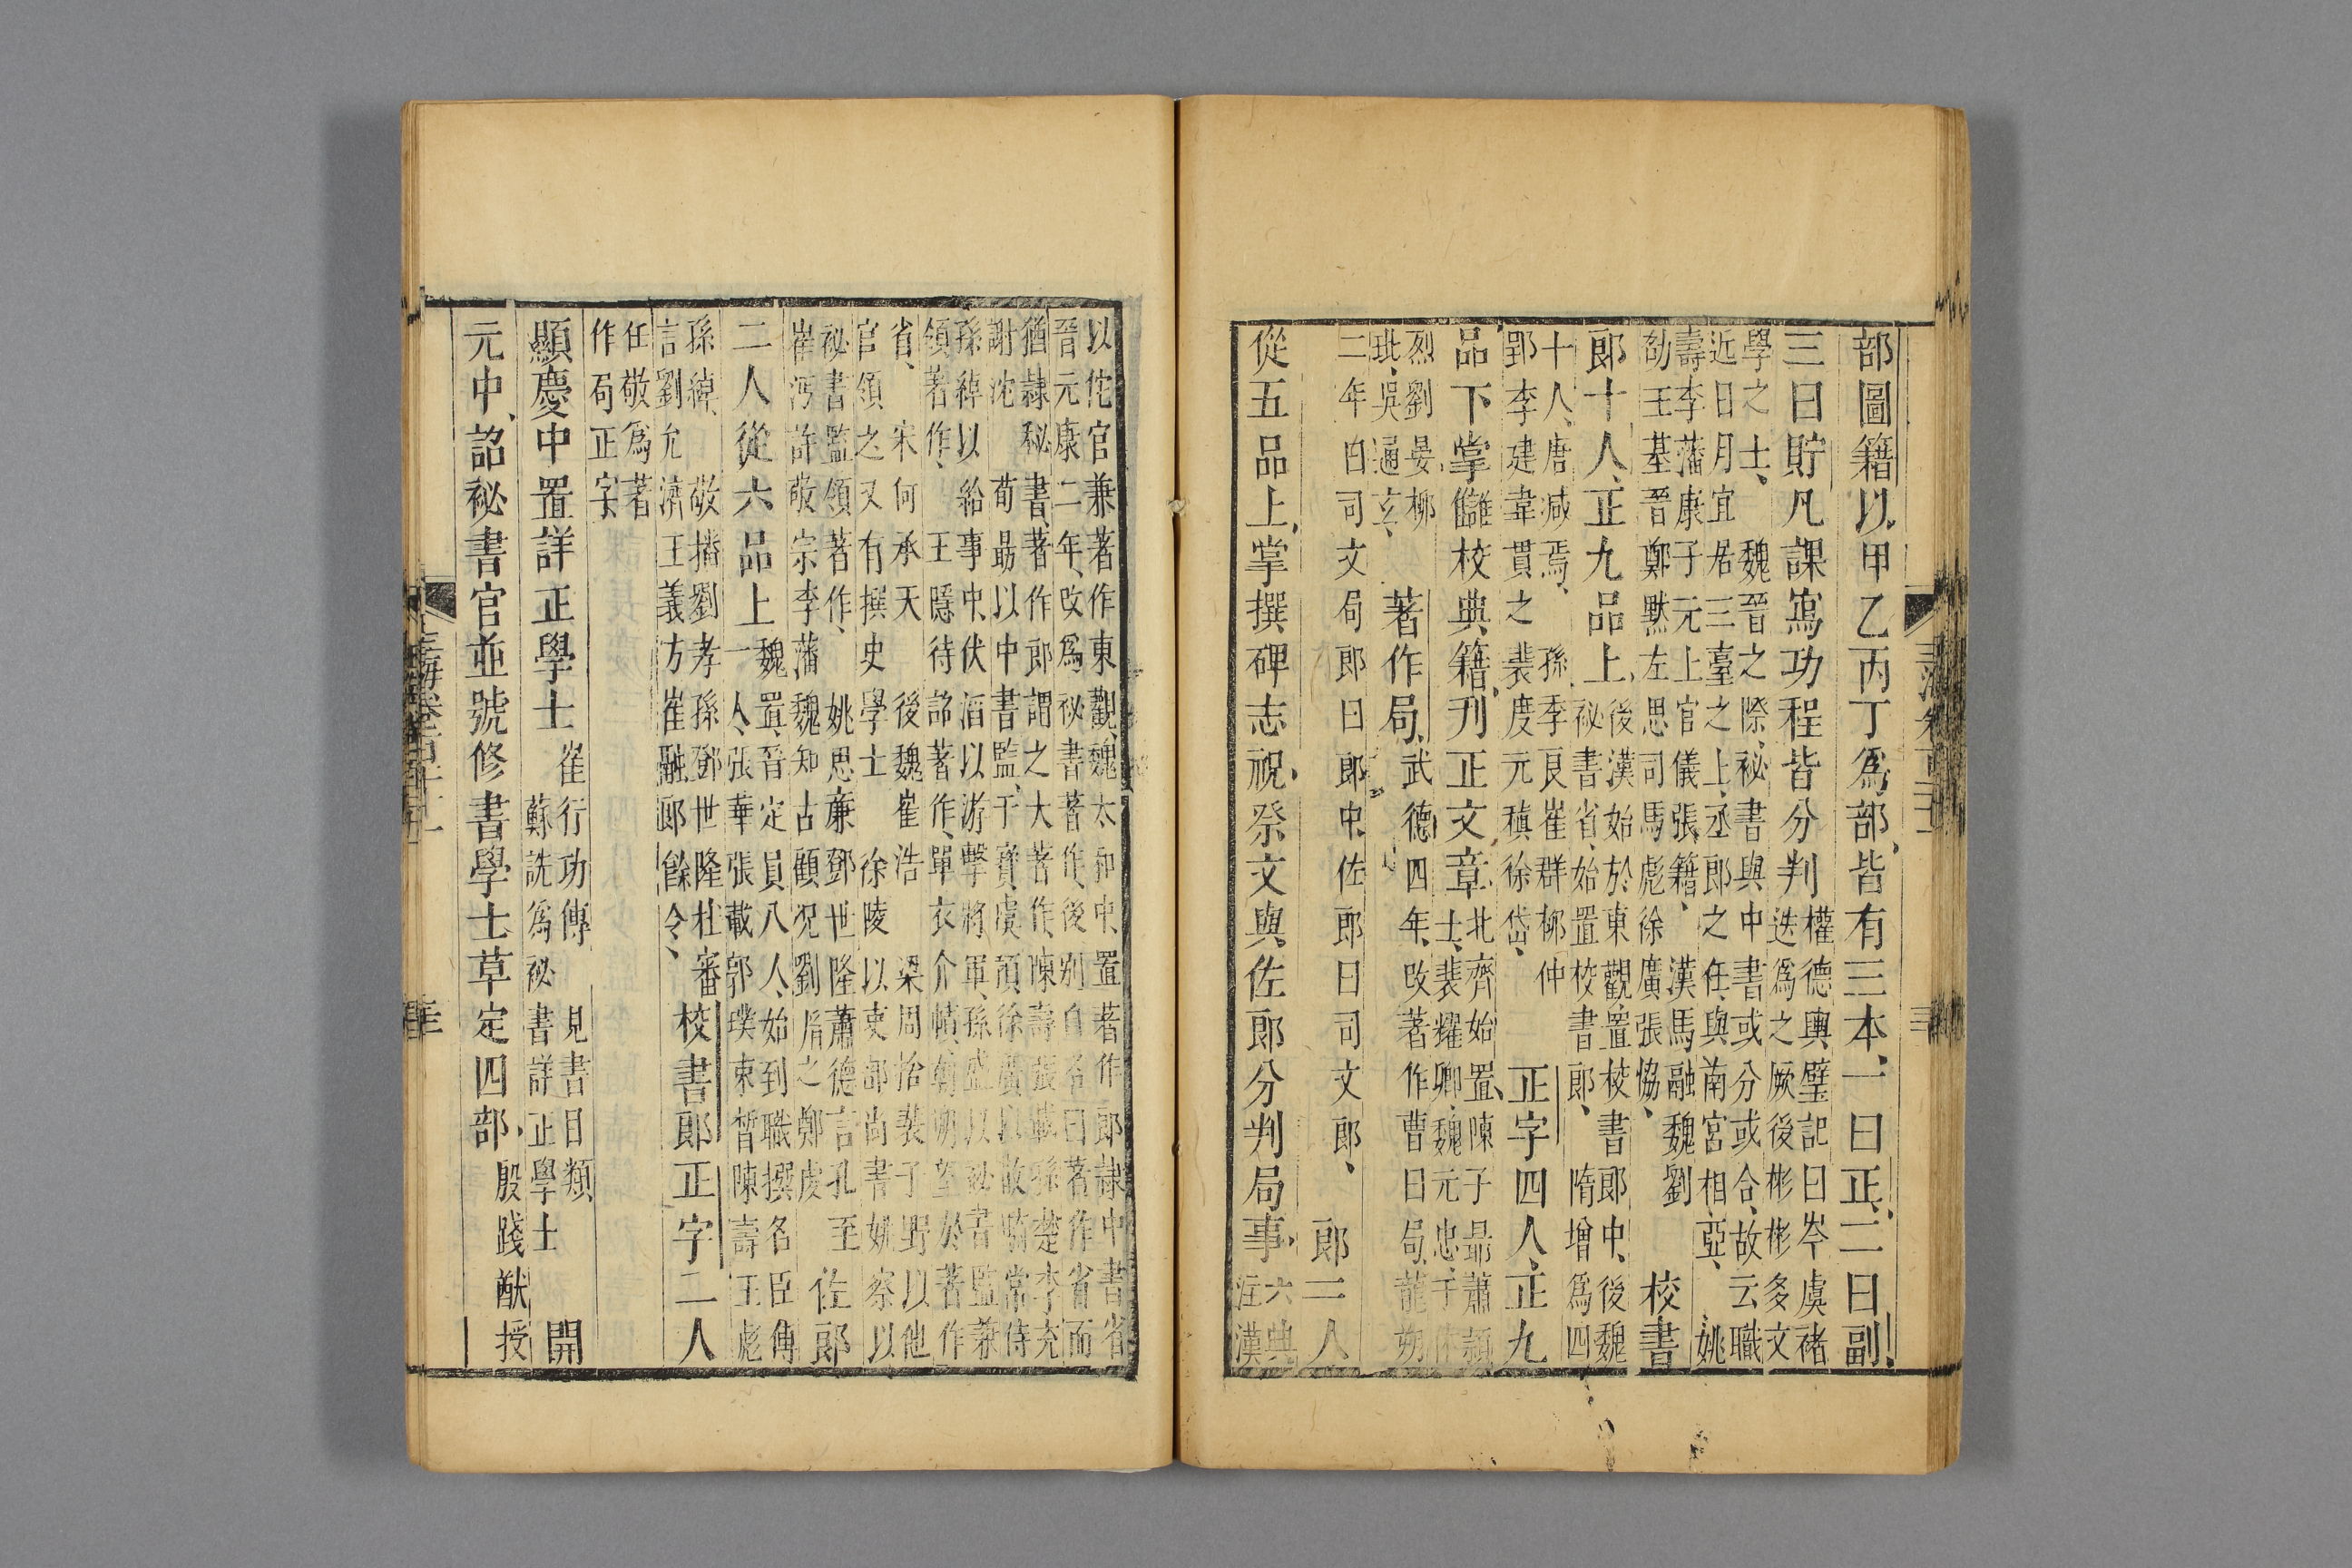 部圖籍以甲乙丙丁爲部皆有三本一曰正二曰副
三曰貯凡課寫功程皆分判
權德輿璧記曰岑虞褚
迭爲之厥後彬彬多文
學之士、魏晉之際祕書與中書或分或合故云職
近日月宜居三臺之上丞郎之任與南宮相亞、姚
壽李藩康子元上官儀張籍、漢馬融魏劉
劾王基晉鄭黙左思司馬彪徐廣張恊、
校書
郎十人正九品上
後漢始於東觀置校書郎中後魏
祕書省始置校書郎、隋增爲四
十人、唐减焉、孫季良崔群柳仲
郢李建韋貫之裴度元稹徐岱、
正字四人正九
品下掌讎校典籍刋正文章
北齊始置陳子昻蕭穎
士裴耀卿魏元忠于休
烈劉晏柳
玭吳通玄、
著作局
武德四年改著作曹曰局龍朔
二年曰司文局郎曰郎中佐郎曰司文郎、
郎二人
從五品上掌撰碑志祝祭文與佐郎分判局事
六典
注漢
以佗官兼著作東觀魏太和中置著作郎隷中書省
晉元康二年改爲祕書著作後別自名曰著作省而
猶隷秘書著作郎謂之大著作陳壽張載孫楚李充
謝沈 荀勗以中書監干寶虞預徐廣以散騎常侍
孫綽以給事中伏滔以游擊將軍孫盛以祕書監兼
領著作、王隱待詔著作單衣介幘朝朔望於著作
省、宋何承天 後魏崔浩 梁周捨裴子野以他
官領之又有撰史學士 徐陵以吏部尚書姚察以
祕書監領著作、姚思廉鄧世隆蕭德言孔至
崔沔許敬宗李藩魏知古顧况劉胥之鄭虔
佐郎
二人從六品上
魏置晉定員八人始到職撰名臣傳
一人張華張載郭璞束皙陳壽王彪
孫綽、敬播劉孝孫鄧世隆杜審
言劉允濟王義方崔融郎餘令、
校書郎正字二人
任敬爲著
作局正字
顯慶中置詳正學士
崔行功傳 見書目類
蘇詵爲祕書詳正學士
開
元中詔祕書官並號修書學士草定四部
殷踐猷授